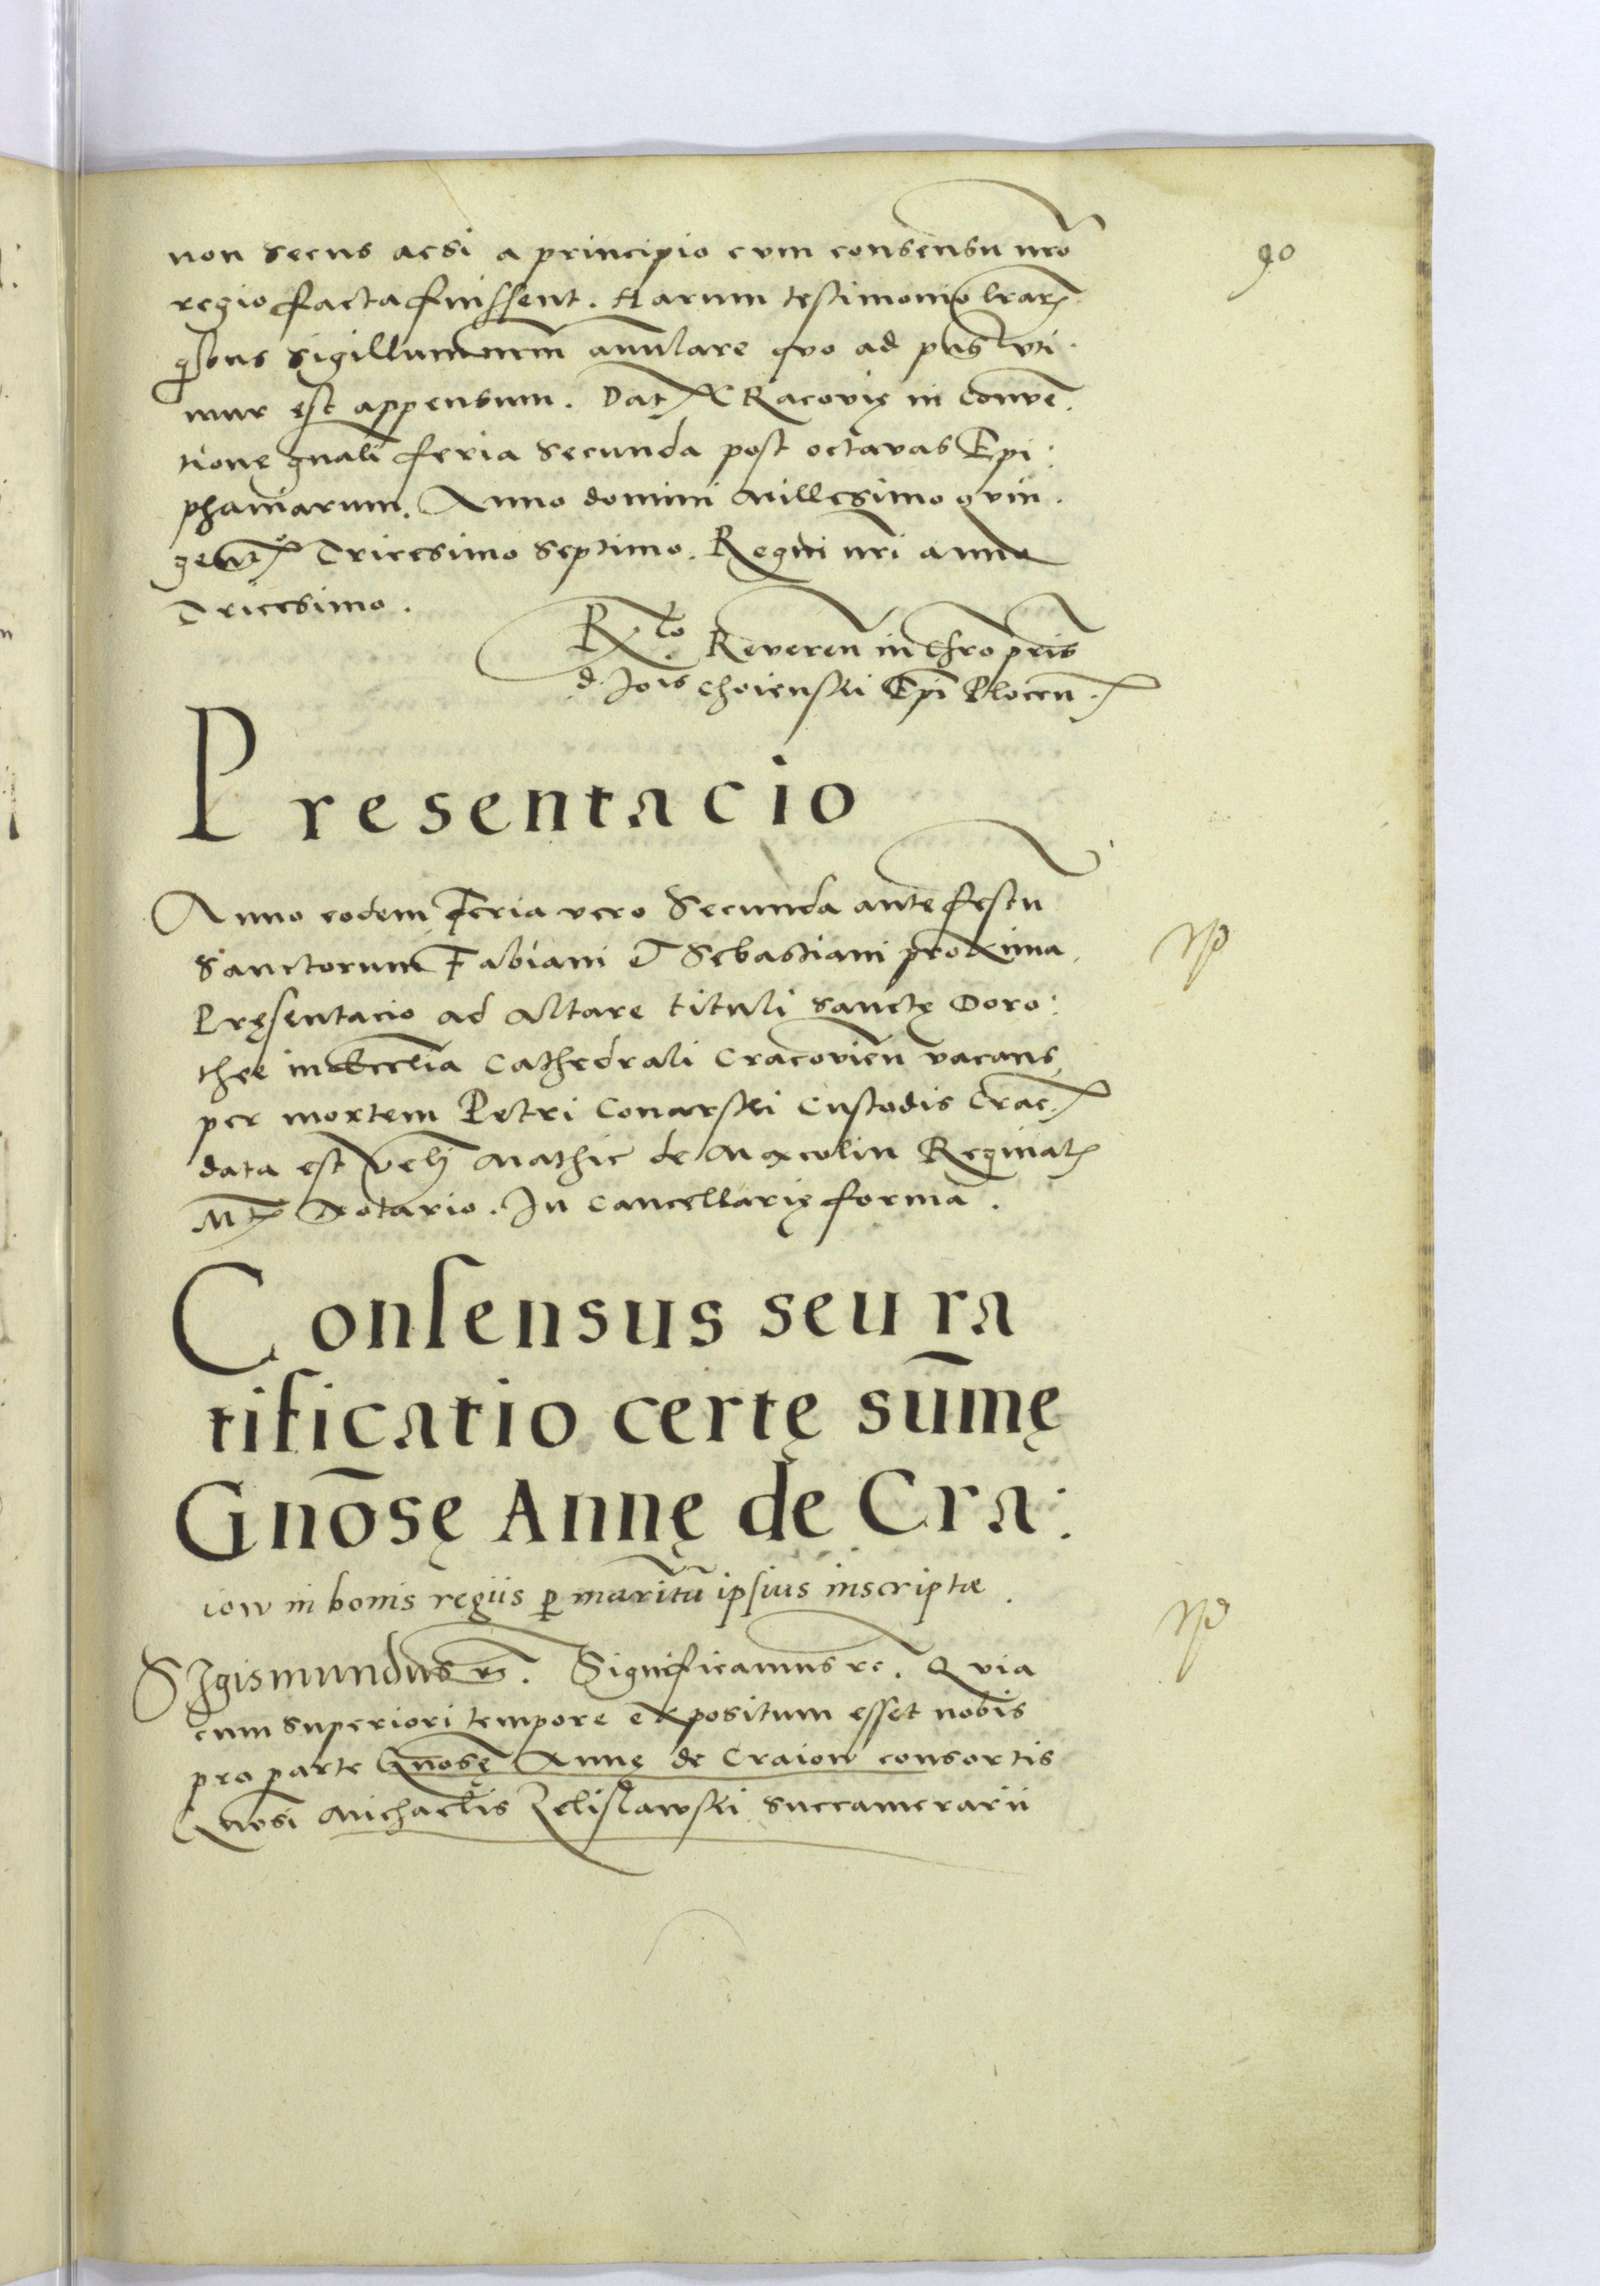 90
non secus acsi a principio cum consensu nro
regio facta fuissent. Harum testimonio lrarꝫ
qbus sigillum nrm anulare quo ad pns uti
mur est appensum. Dat Racovię in Conven
tione gnali feria secunda post octavas Epi:
phaniarum. Anno domini Millesimo quin
gent Tricesimo septimo. Regni nri anno
Tricesimo.
Rto Reveren in Chro pris
d. Jois Choienski Epi Plocen.
Presentacio
Anno eodem Feria vero Secunda ante festu
Sanctorum Fabiani et Sebastiani proxima
Pręsentacio ad Altare tituli sanctę Doro:
thee in Ecclia Cathedrali Cracovien vacans
per mortem Petri Conarski Custodis Crac.
data est Mathie de Reginal
Mt Notario. In Cancellarię forma.
Consensus seu ra
tificatio certę sum̄ę
Gnōsę Annę de Cra:
iow in bonis regiis ꝑ maritū ipsius inscriptæ.
SIgismundus rc. Significamus rc. Quia
cum superiori tempore expositum esset nobis
pro parte Gnosę Annę de Craiow consortis
Gnosi Michaelis Zelislawski Succamerarii